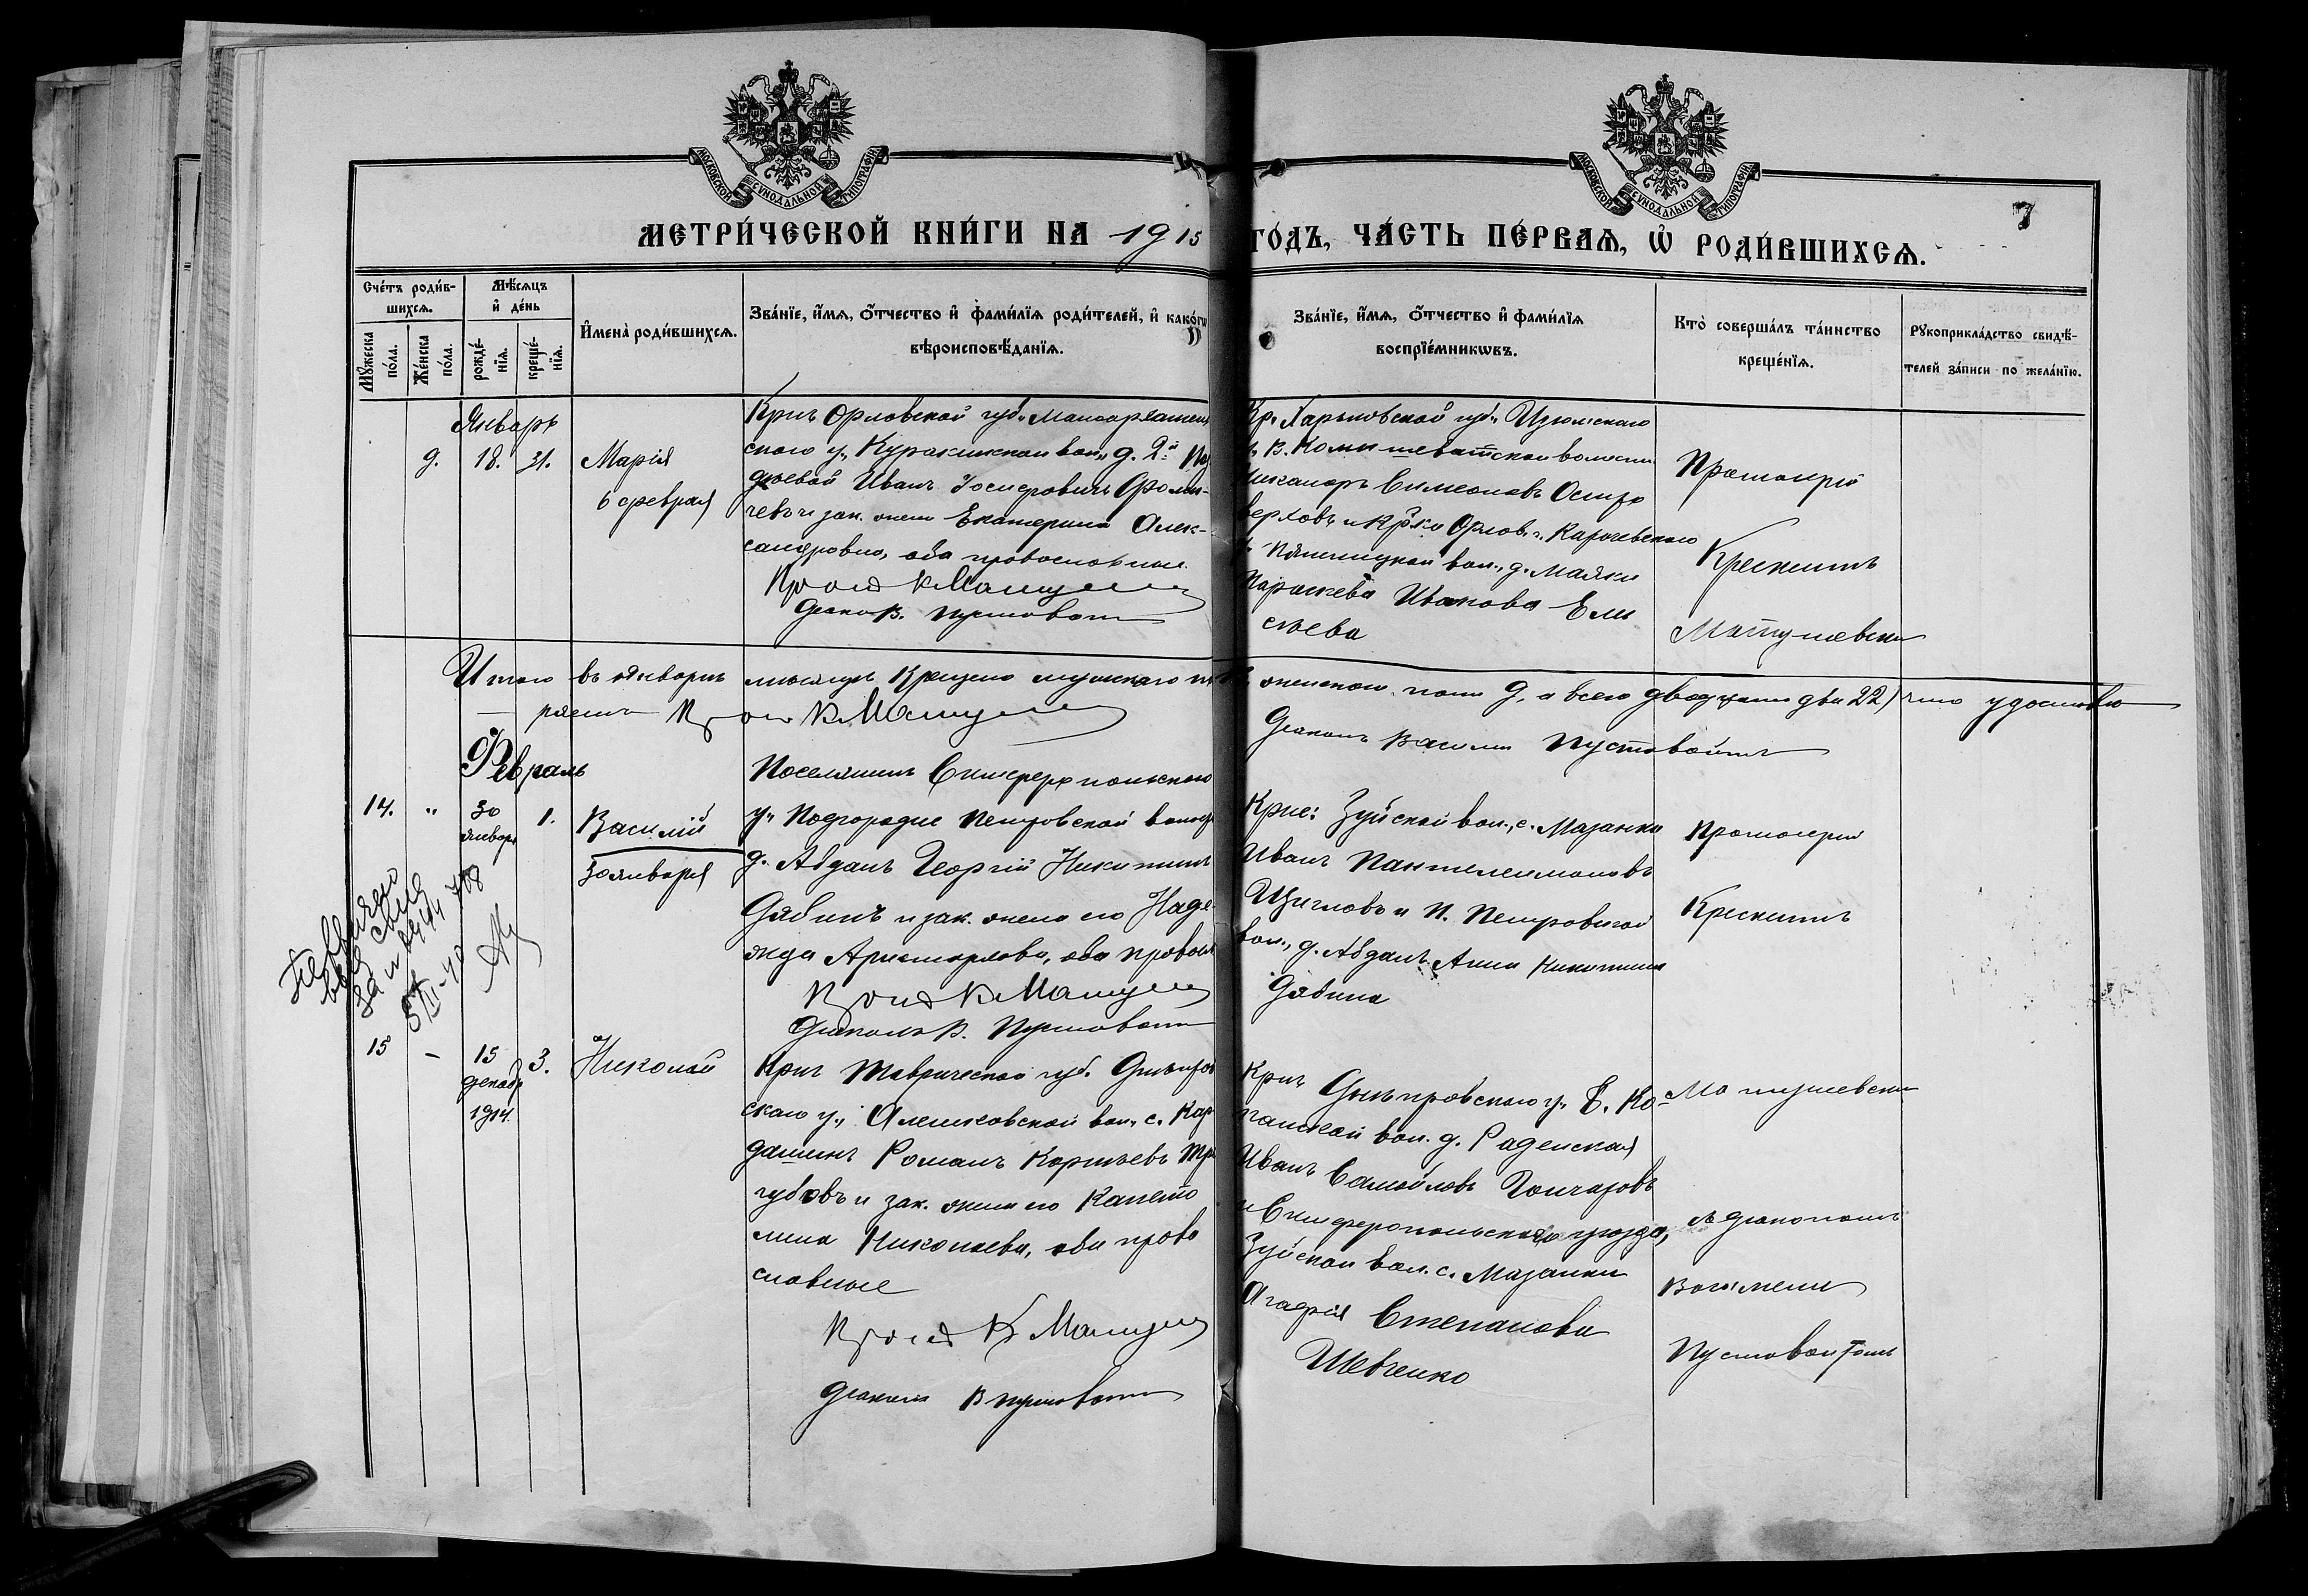 МОСКОВСКОЙ СѴНОДАЛЬНОЙ ТИПОГРАФІИ
МОСКОВСКОЙ СѴНОДАЛЬНОЙ ТИПОГРАФІИ
7
МЕТРИ́ЧЕСКОЙ КНИ́ГИ НА 1915
ГО́ДЪ, ЧА́СТЬ ПЕ́РВАѦ, Ѡ҆ РОДИ́ВШИХСѦ.
Сче́тъ роди́в-
шихсѧ.
Мꙋ́жеска по́ла.
Же́нска по́ла.
Мѣ́сѧцъ
и҆ де́нь
рожде́-
нїѧ.
креще́-
нїѧ.
И҆мена̀ роди́вшихсѧ.
Зва́нїе, и҆́мѧ, ѻ҆́тчество и҆ фами́лїѧ роди́телей, и҆ како́гѡ
вѣроисповѣ́данїѧ.
Зва́нїе, и҆́мѧ, ѻ҆́тчество и҆ фами́лїѧ
воспрїе́мникѡвъ.
Кто̀ соверша́лъ та́инство
креще́нїѧ.
Рꙋкоприкла́дство свидѣ́-
телей за́писи по жела́нїю.
Январь
9. 18. 31. Марія
6 февраля
Крнъ Орловской губ.
скаго у., Куракинской вол., д. 2й
Иванъ Іосифовичъ Фоми-
чевъ и зак. жена Екатерина Алек-
сандровна, оба православные
Прот. К Матуш
Діак. В. Пустовойт
Кр. Харьковской губ. Изюмскаго
у. В. Камышеватской волости
Никаноръ Симеоновъ Остро
верховъ и Кр-ка Орлов. г. Карачевскаго
вол., д. Маяки
Параскева Иванова Ели
сеева
Протоіерей
Крескентъ
Матушевскій
Итого въ январѣ мѣсяцѣ крещено мужскаго
женскаго пола 9, а всего двадцать два 22) что удостовѣ
ряемъ Прот. К. Матуш
Діаконъ Василій Пустовойтъ
Февраль
14. " 30 января 1. Василій
30 января
Поселянинъ Симферопольскаго
у., Подгородне Петровской волос
д. Абдалъ Георгій Никитинъ
Дябинъ и зак. жена его Наде
жда Аристархова, оба правосл
Прот. К Матуш
Діаконъ В. Пустовойт
Крне: Зуйской вол., с. Мазанки
Иванъ Пантелеимоновъ
Щегловъ и П. Петровской
вол., д. Абдалъ Анна Никитина
Дябина
Протоіерей
Крескентъ
15 – 15 декабр 1914. 3. Николай
Крнъ Таврической губ. Днѣпров
скаго у., Алешковской вол., с. Кар
дашинъ Романъ Корнѣевъ Тре
губовъ и зак. жена его Капето
лина Николаева, оба право
славные
Прот. К Матуш
Діаконъ В Пустовойт
Крнъ Днѣпровскаго у., Б. Ко-
панской вол. д. Раденская
Иванъ Самойловъ Гончаровъ
и Симферопольскаго уѣзда,
Зуйской вол. с. Мазанки
Агафія Степанова
Шевченко
Матушевскій
съ діакономъ
Василіемъ
Пустовойтомъ